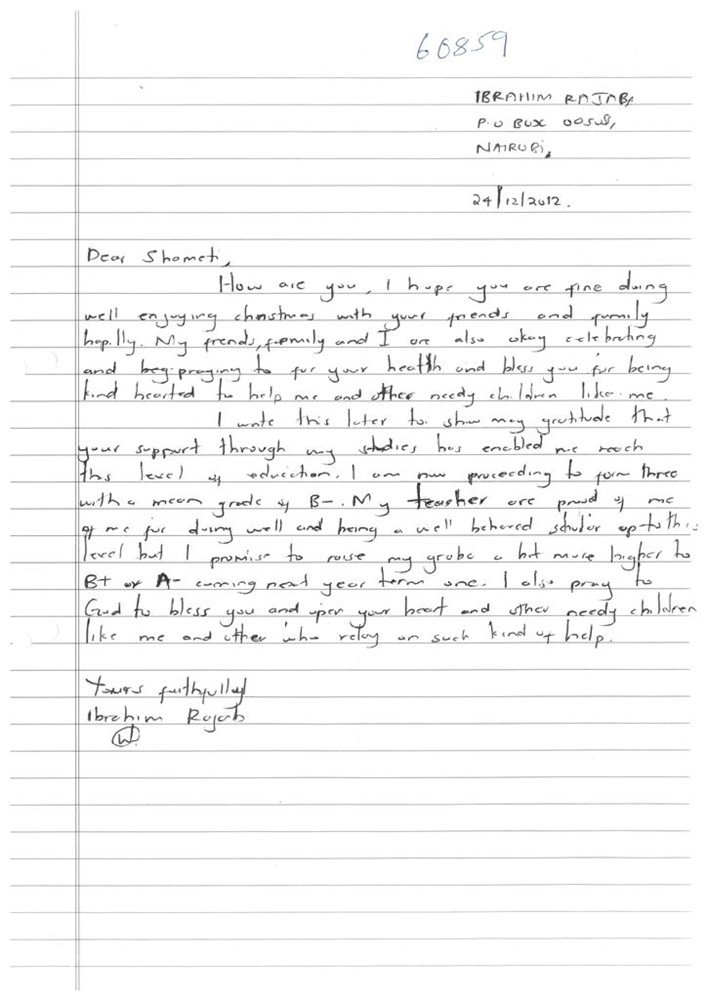 60859
IBRAHIM RAJAB,
P.O BOX
NAIROBI,
24/12/2012.
Dear Shameti,
How are you, I hope you are fine doing
well enjoying christmas with your friends and family
happily. My frends, family and I are also okay celebrating
and praying to for your health and bless you for being
kind hearted to help me and other needy children like me.
I write this later to show may gratitude that
your support through my studies has enabled me reach
this level of education. I am now proceeding to form three
with a mean grade of B-. My teasher are proud of me
of me for doing well and being a well behaved scholar up to this
level but I promise to raise my grabe a bit more higher to
B+ or A- coming next year term one. I also pray to
God to bless you and open your heart and other needy children
like me and other who relay on such kind of help.
Yours faithfully
Ibrahim Rajab